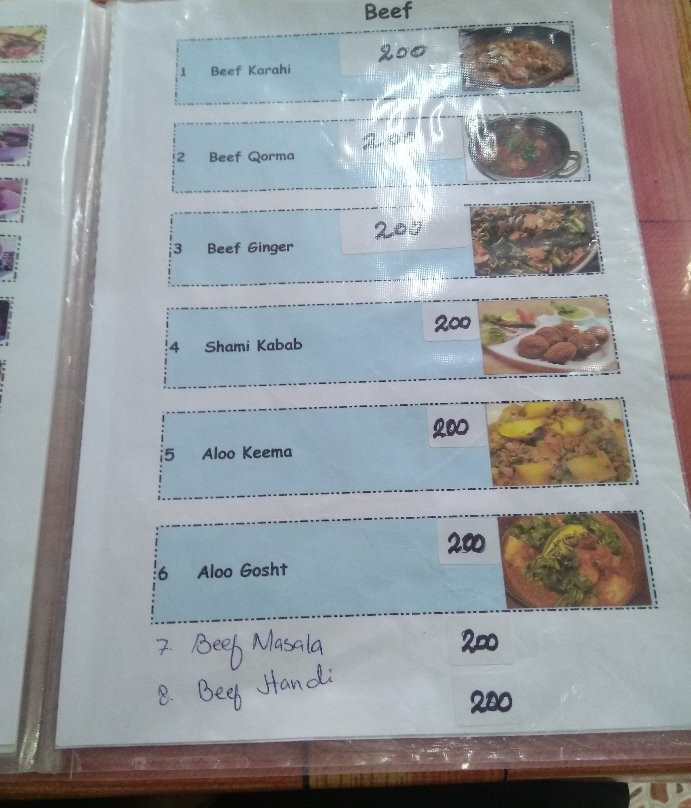 Beef
1 Beef Karahi 200
2 Beef Qorma 200
3 Beef Ginger 200
4 Shami Kabab 200
5 Aloo Keema 200
6 Aloo Gosht 200
7. Beef Masala 200
8. Beef Handi 200